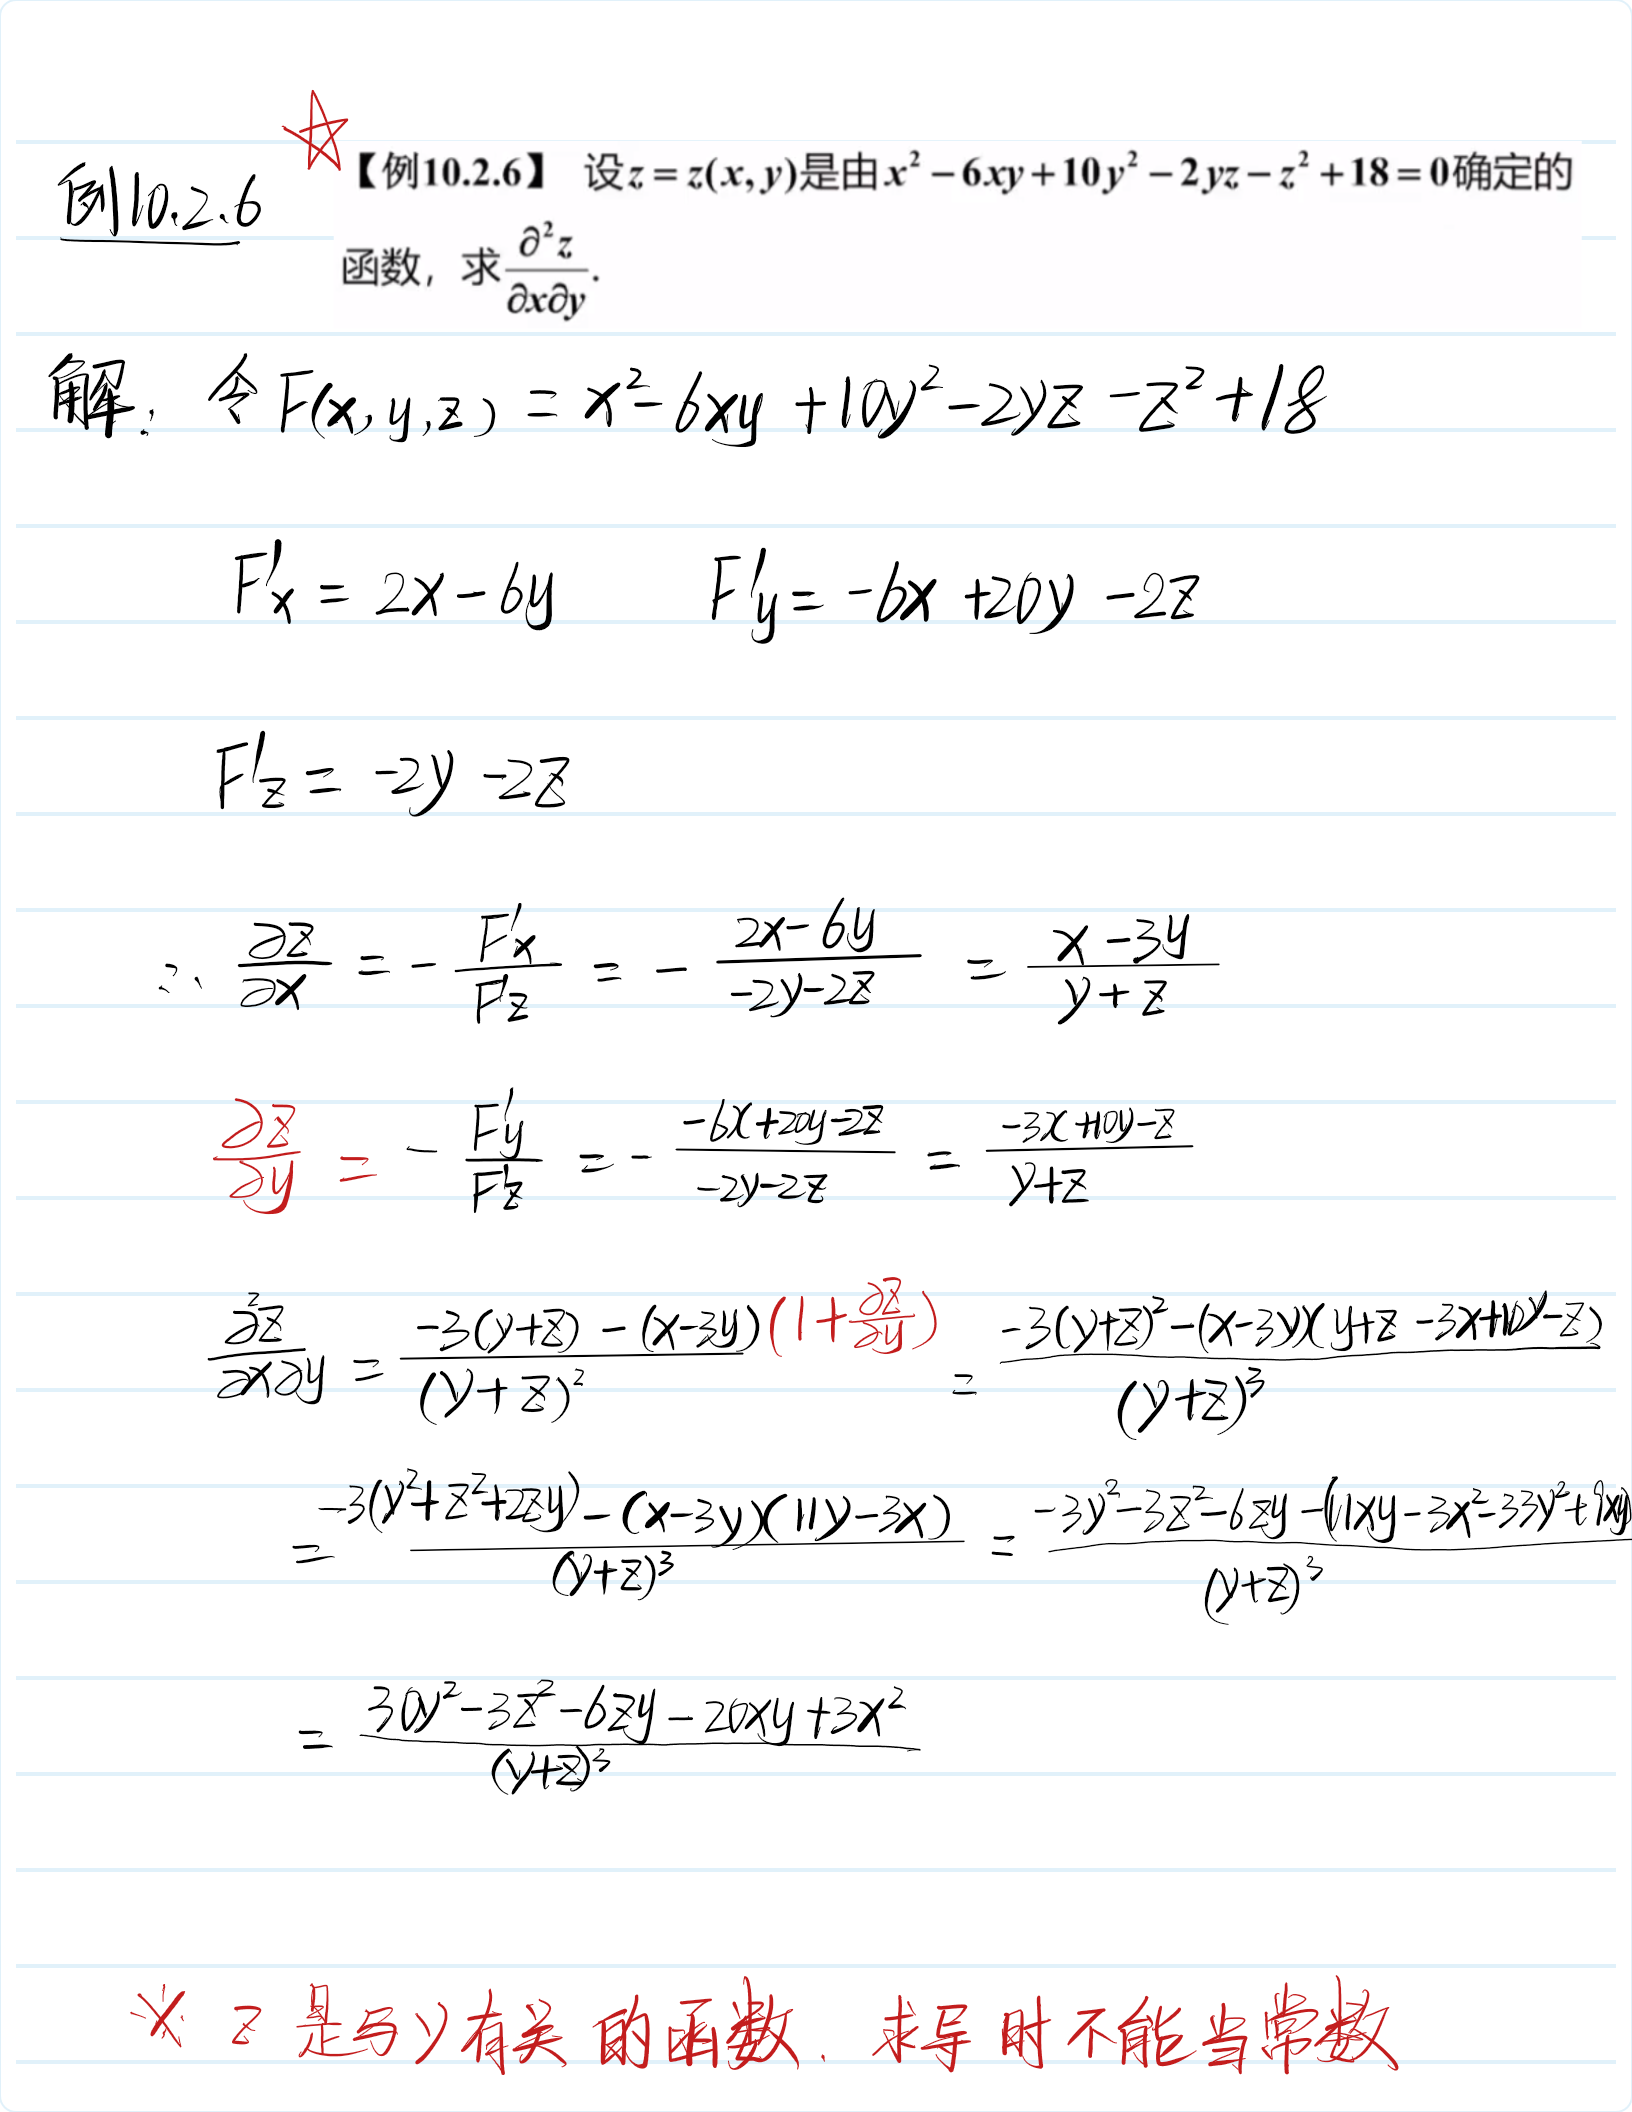 例10.2.6
【例10.2.6】 设z = z(x, y)是由x² − 6xy + 10y² − 2yz − z² + 18 = 0确定的
函数，求∂²z/∂x∂y.
解: 令 F(x,y,z) = x²-6xy+10y²-2yz-z²+18
F'x = 2x-6y F'y = -6x+20y-2z
F'z = -2y-2z
∴ ∂z/∂x = - F'x/F'z = - (2x-6y)/(-2y-2z) = (x-3y)/(y+z)
∂z/∂y = - F'y/F'z = - (-6x+20y-2z)/(-2y-2z) = (-3x+10y-z)/(y+z)
∂²z/∂x∂y = (-3(y+z) - (x-3y)(1+∂z/∂y))/(y+z)² = (-3(y+z)²-(x-3y)(y+z-3x+10y-z))/(y+z)³
= (-3(y²+z²+2zy)-(x-3y)(11y-3x))/(y+z)³ = (-3y²-3z²-6zy-(11xy-3x²-33y²+9xy)/(y+z)³
= (30y²-3z²-6zy-20xy+3x²)/(y+z)³
※ z 是与y有关的函数. 求导时不能当常数